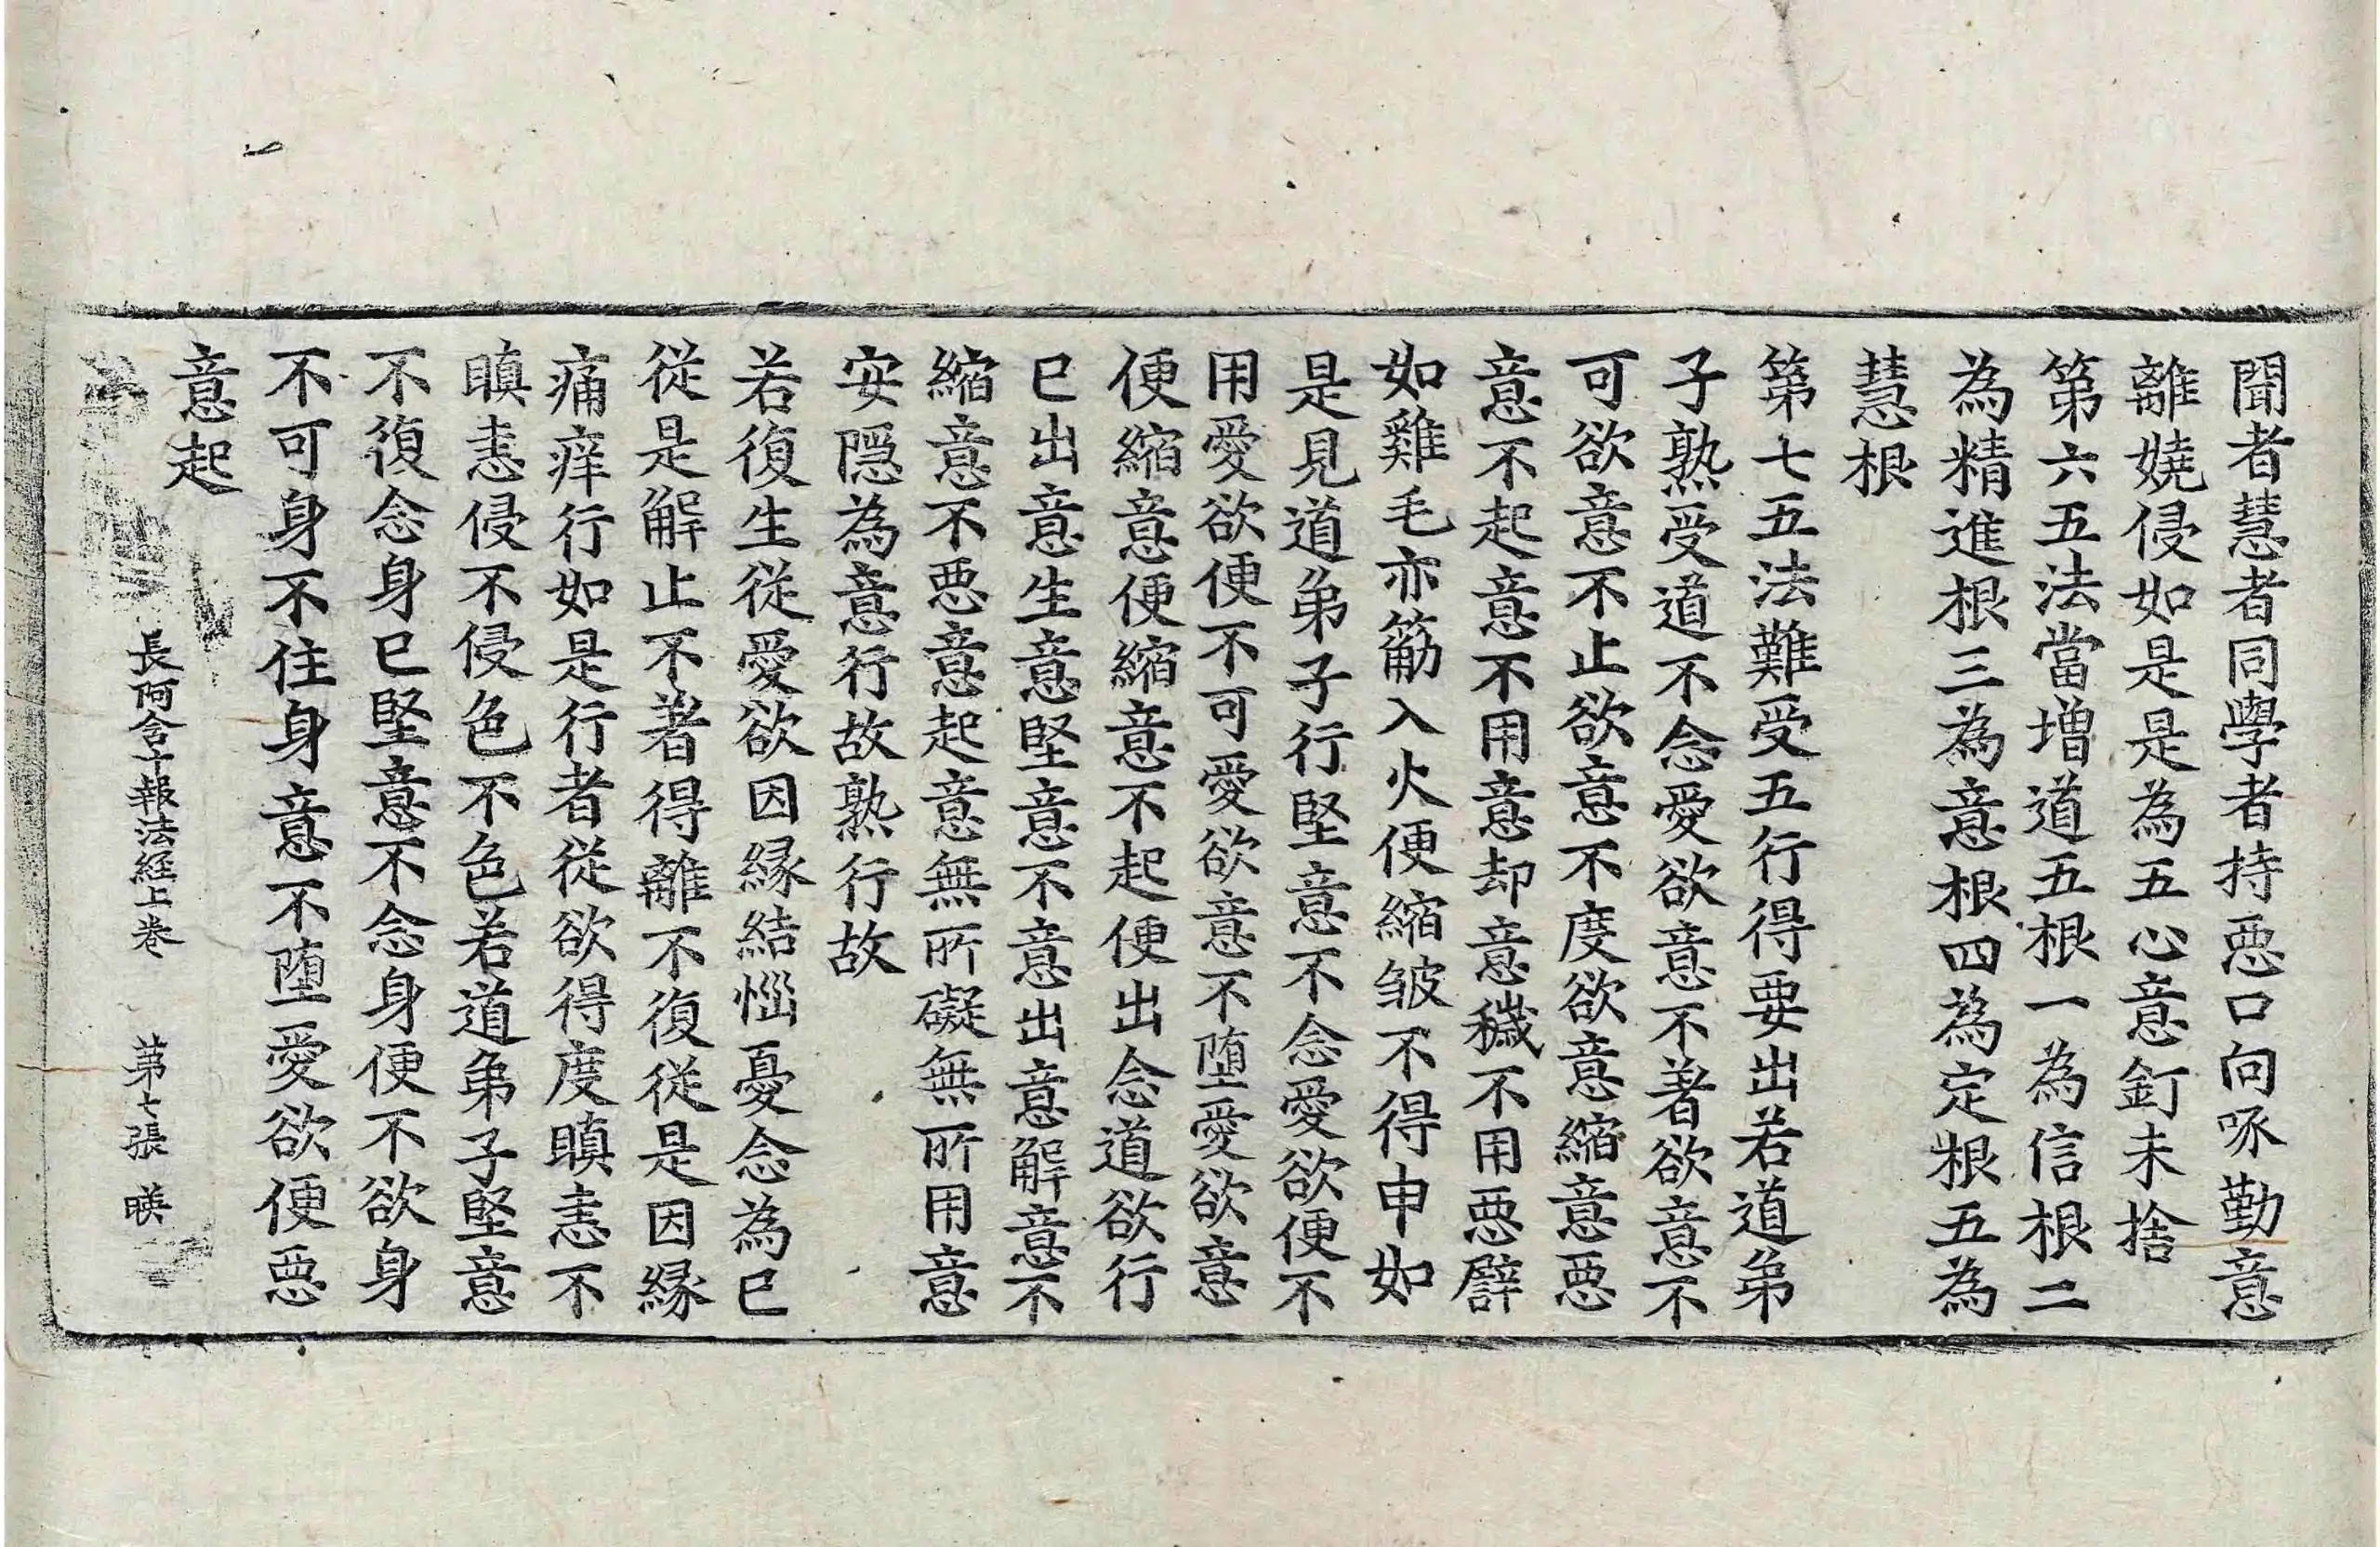 聞者慧者同學者持惡口向啄勤意
離嬈侵如是是為五心意釘未捨
第六五法當增道五根一為信根二
為精進根三為意根四為定根五為
慧根
第七五法難受五行得要出若道弟
子熟受道不念愛欲意不著欲意不
可欲意不止欲意不度欲意縮意惡
意不起意不用意却意穢不用惡礕
如雞毛亦筋入火便縮皺不得申如
是見道弟子行堅意不念愛欲便不
用愛欲便不可愛欲意不堕愛欲意
便縮意便縮意不起便出念道欲行
已出意生意堅意不意出意解意不
縮意不惡意起意無所礙無所用意
安隱為意行故熟行故
若復生從愛欲因緣結惱憂念為已
從是解止不著得離不復從是因緣
痛痒行如是行者從欲得度瞋恚不
瞋恚侵不侵色不色若道弟子堅意
不復念身已堅意不念身便不欲身
不可身不住身意不堕愛欲便惡
意起
長阿含十報法經上卷 第七張 暎